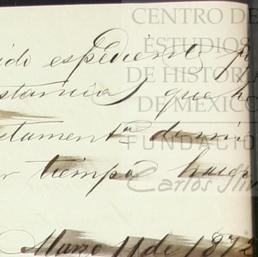 CENTRO DE
ESTUDIOS
DE HISTORIA
DE MÉXICO
FUNDACIÓN
Carlos Slim
ido espediente, p
stancia, que h
tetament
r tiempo
Marzo 11 de 187